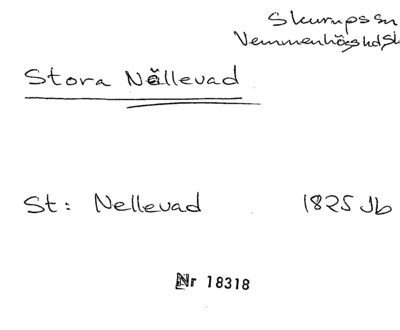 Skurups sn
Vemmenhögs hd, Sk
Stora Nällevad
St: Nellevad 1825 Jb
Nr 18318